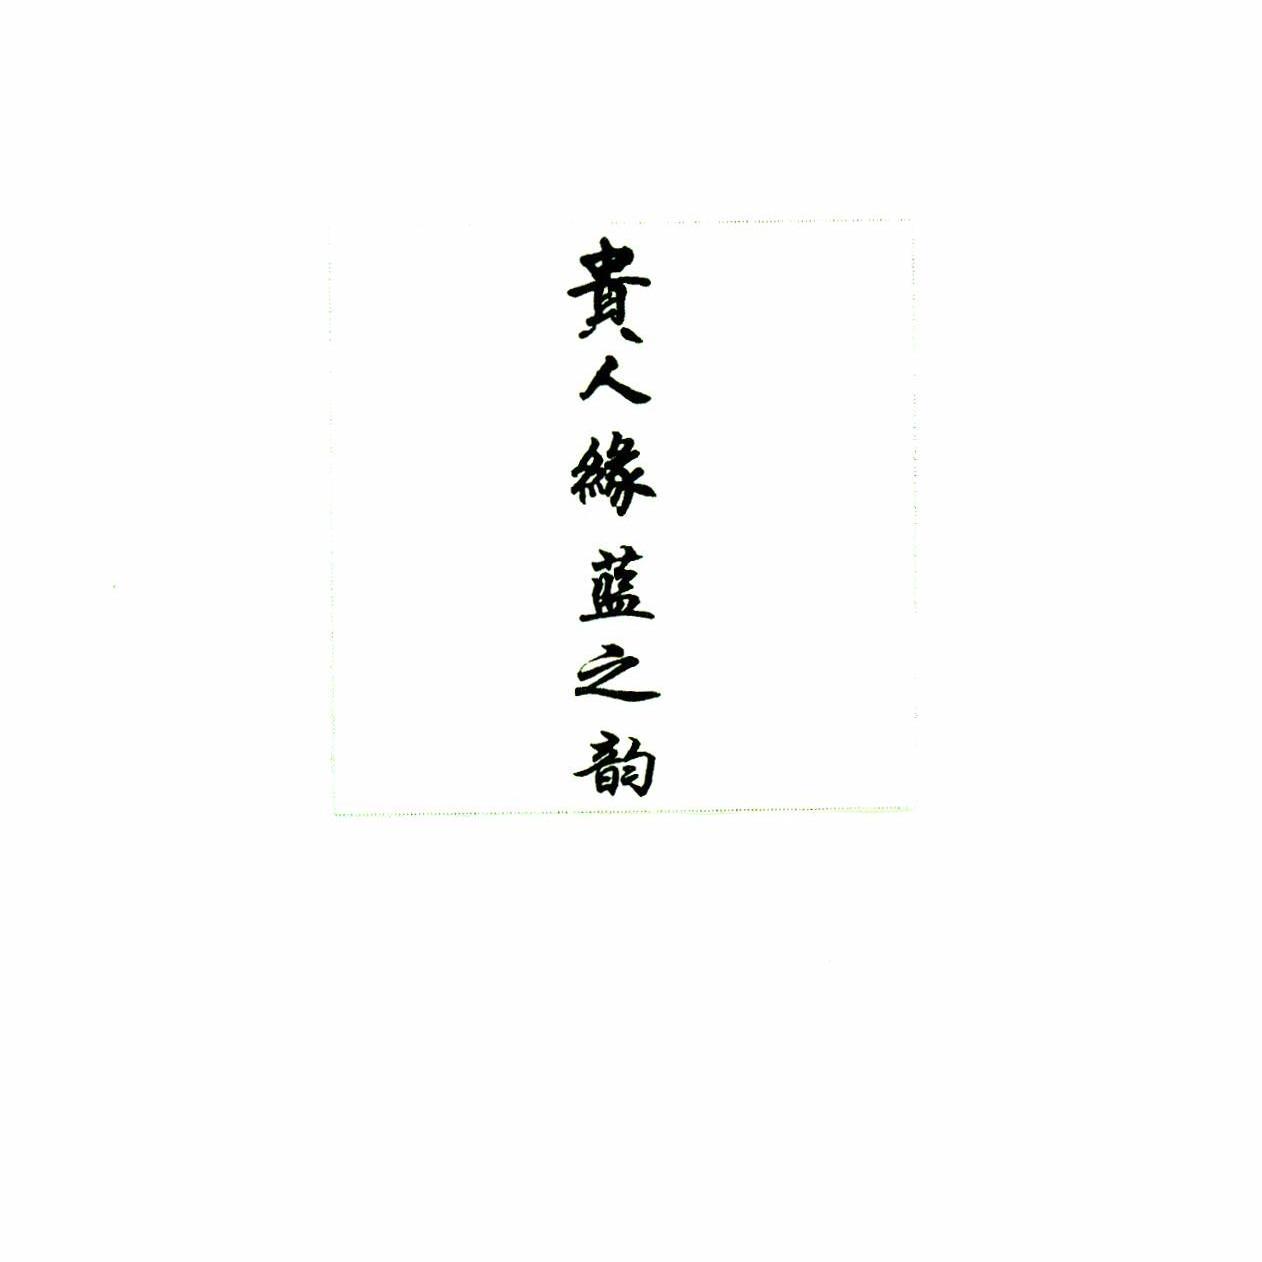 貴人緣藍之韵